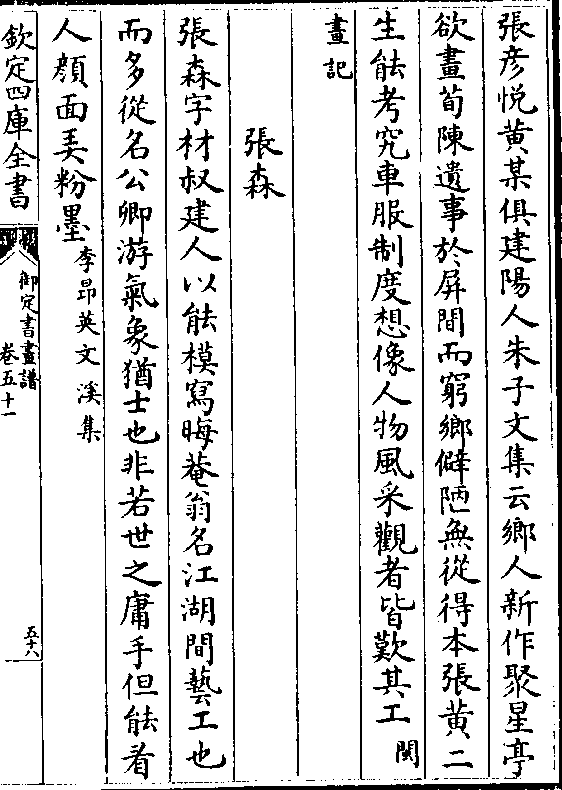 張彦悦黄某俱建陽人朱子文集云鄉人新作聚星亭
欲畫荀陳遺事於屏間而窮鄉僻陋無從得本張黄二
生能考究車服制度想像人物風采觀者皆歎其工 閩
畫記
張森
張森字材叔建人以能模寫晦菴翁名江湖間藝工也
而多從名公卿游氣象猶士也非若世之庸手但能看
人顔面美粉墨 李昂英文溪集
欽定四庫全書
御定書畫譜
卷五十一
五十八